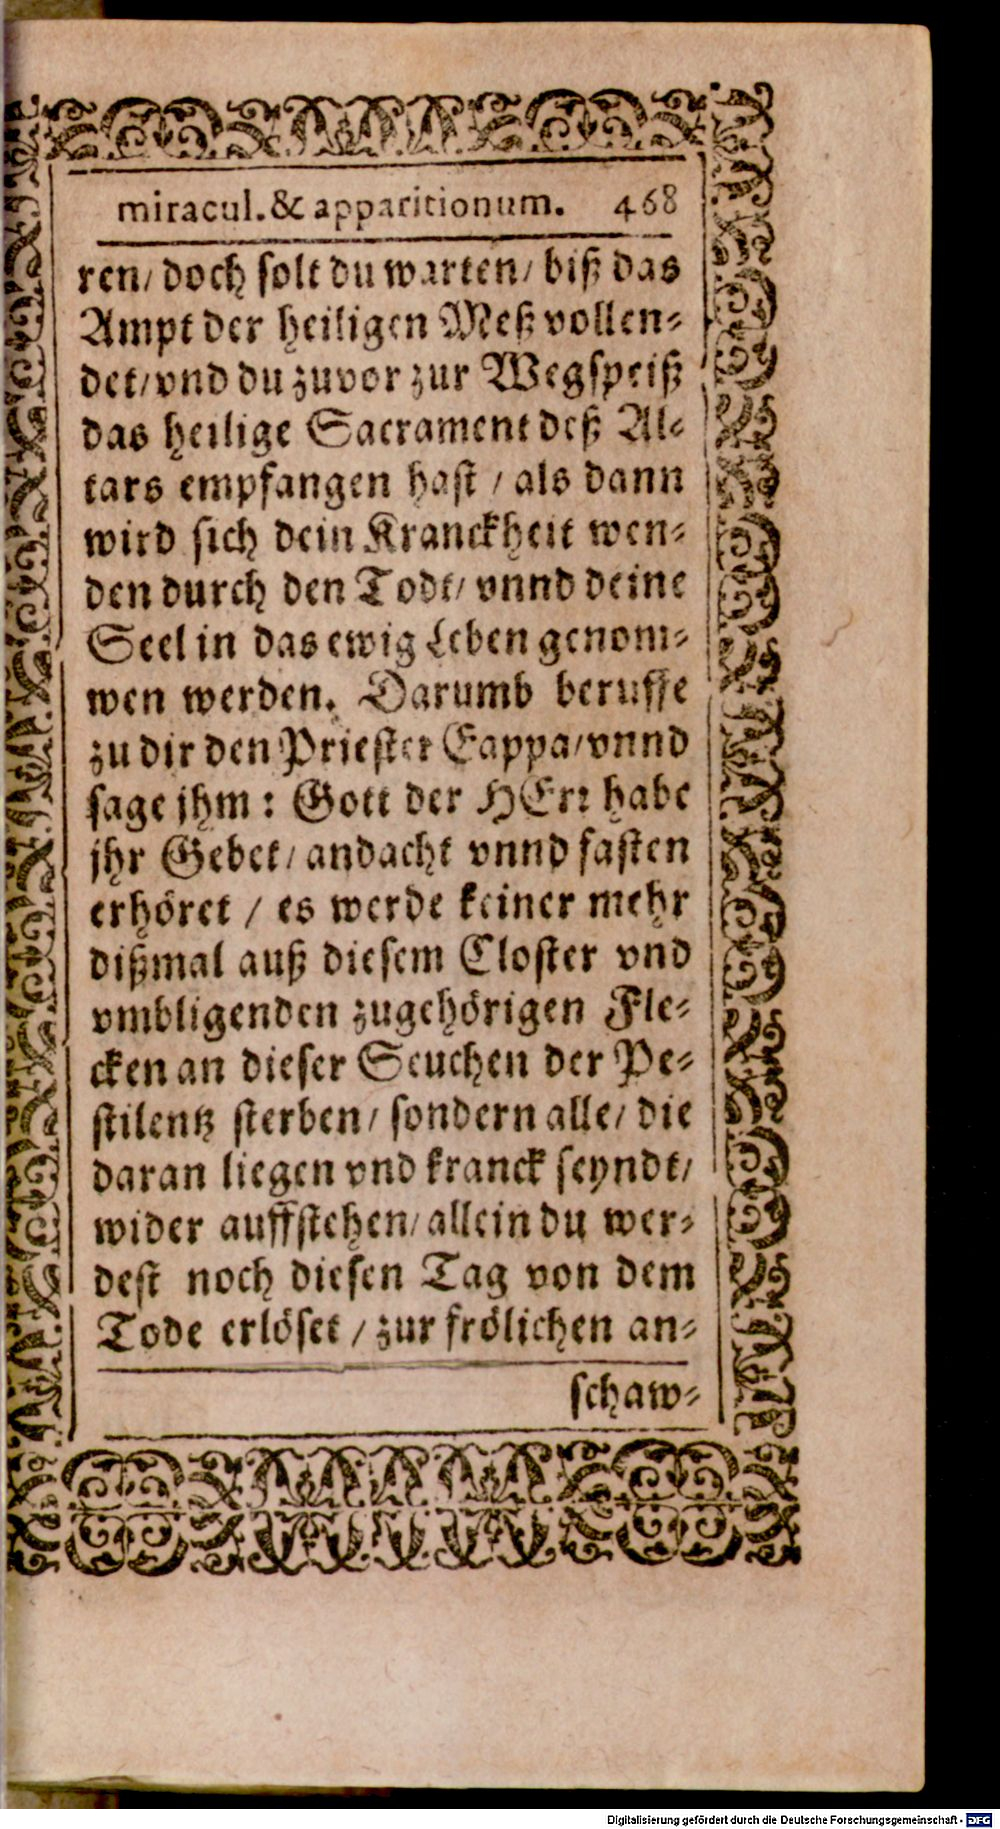 miracul. & apparitionum. 468
ren/ doch solt du warten/ biß das
Ampt der heiligen Meß vollen-
det/ vnd du zuvor zur Wegspeiß
das heilige Sacrament deß Al-
tars empfangen hast / als dann
wird sich dein Kranckheit wen-
den durch den Todt/ vnnd deine
Seel in das ewig Leben genom-
wen werden. Darumb beruffe
zu dir den Priester Eappa/ vnnd
sage jhm : Gott der HErr habe
jhr Gebet/ andacht vnnd fasten
erhöret / es werde keiner mehr
dißmal auß diesem Closter vnd
vmbligenden zugehörigen Fle-
cken an dieser Seuchen der Pe-
stilentz sterben/ sondern alle/ die
daran liegen vnd kranck seyndt/
wider auffstehen/ allein du wer-
dest noch diesen Tag von dem
Tode erlöset / zur frölichen an-
schaw-
Digitalisierung gefördert durch die Deutsche Forschungsgemeinschaft - DFG